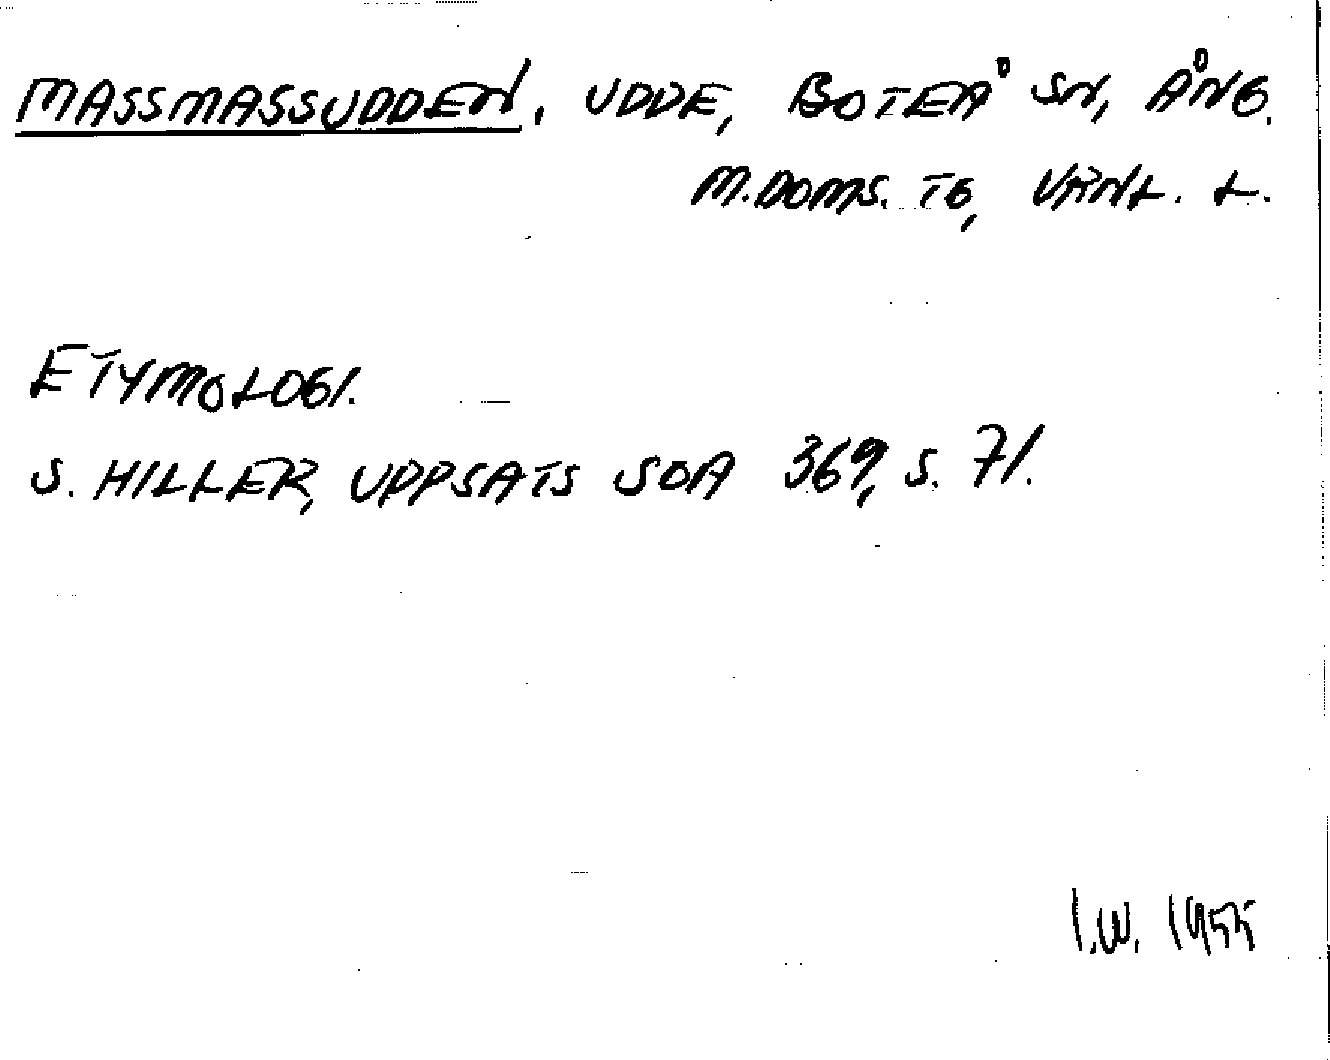 MASSMASSUDDEN, UDDE, BOTEÅ SN, ÅNG.
M.DOMS. TG, VÄNL. L.
ETYMOLOGI.
S. HILLER, UPPSATS SOA 369, S. 71.
I.W. 1955